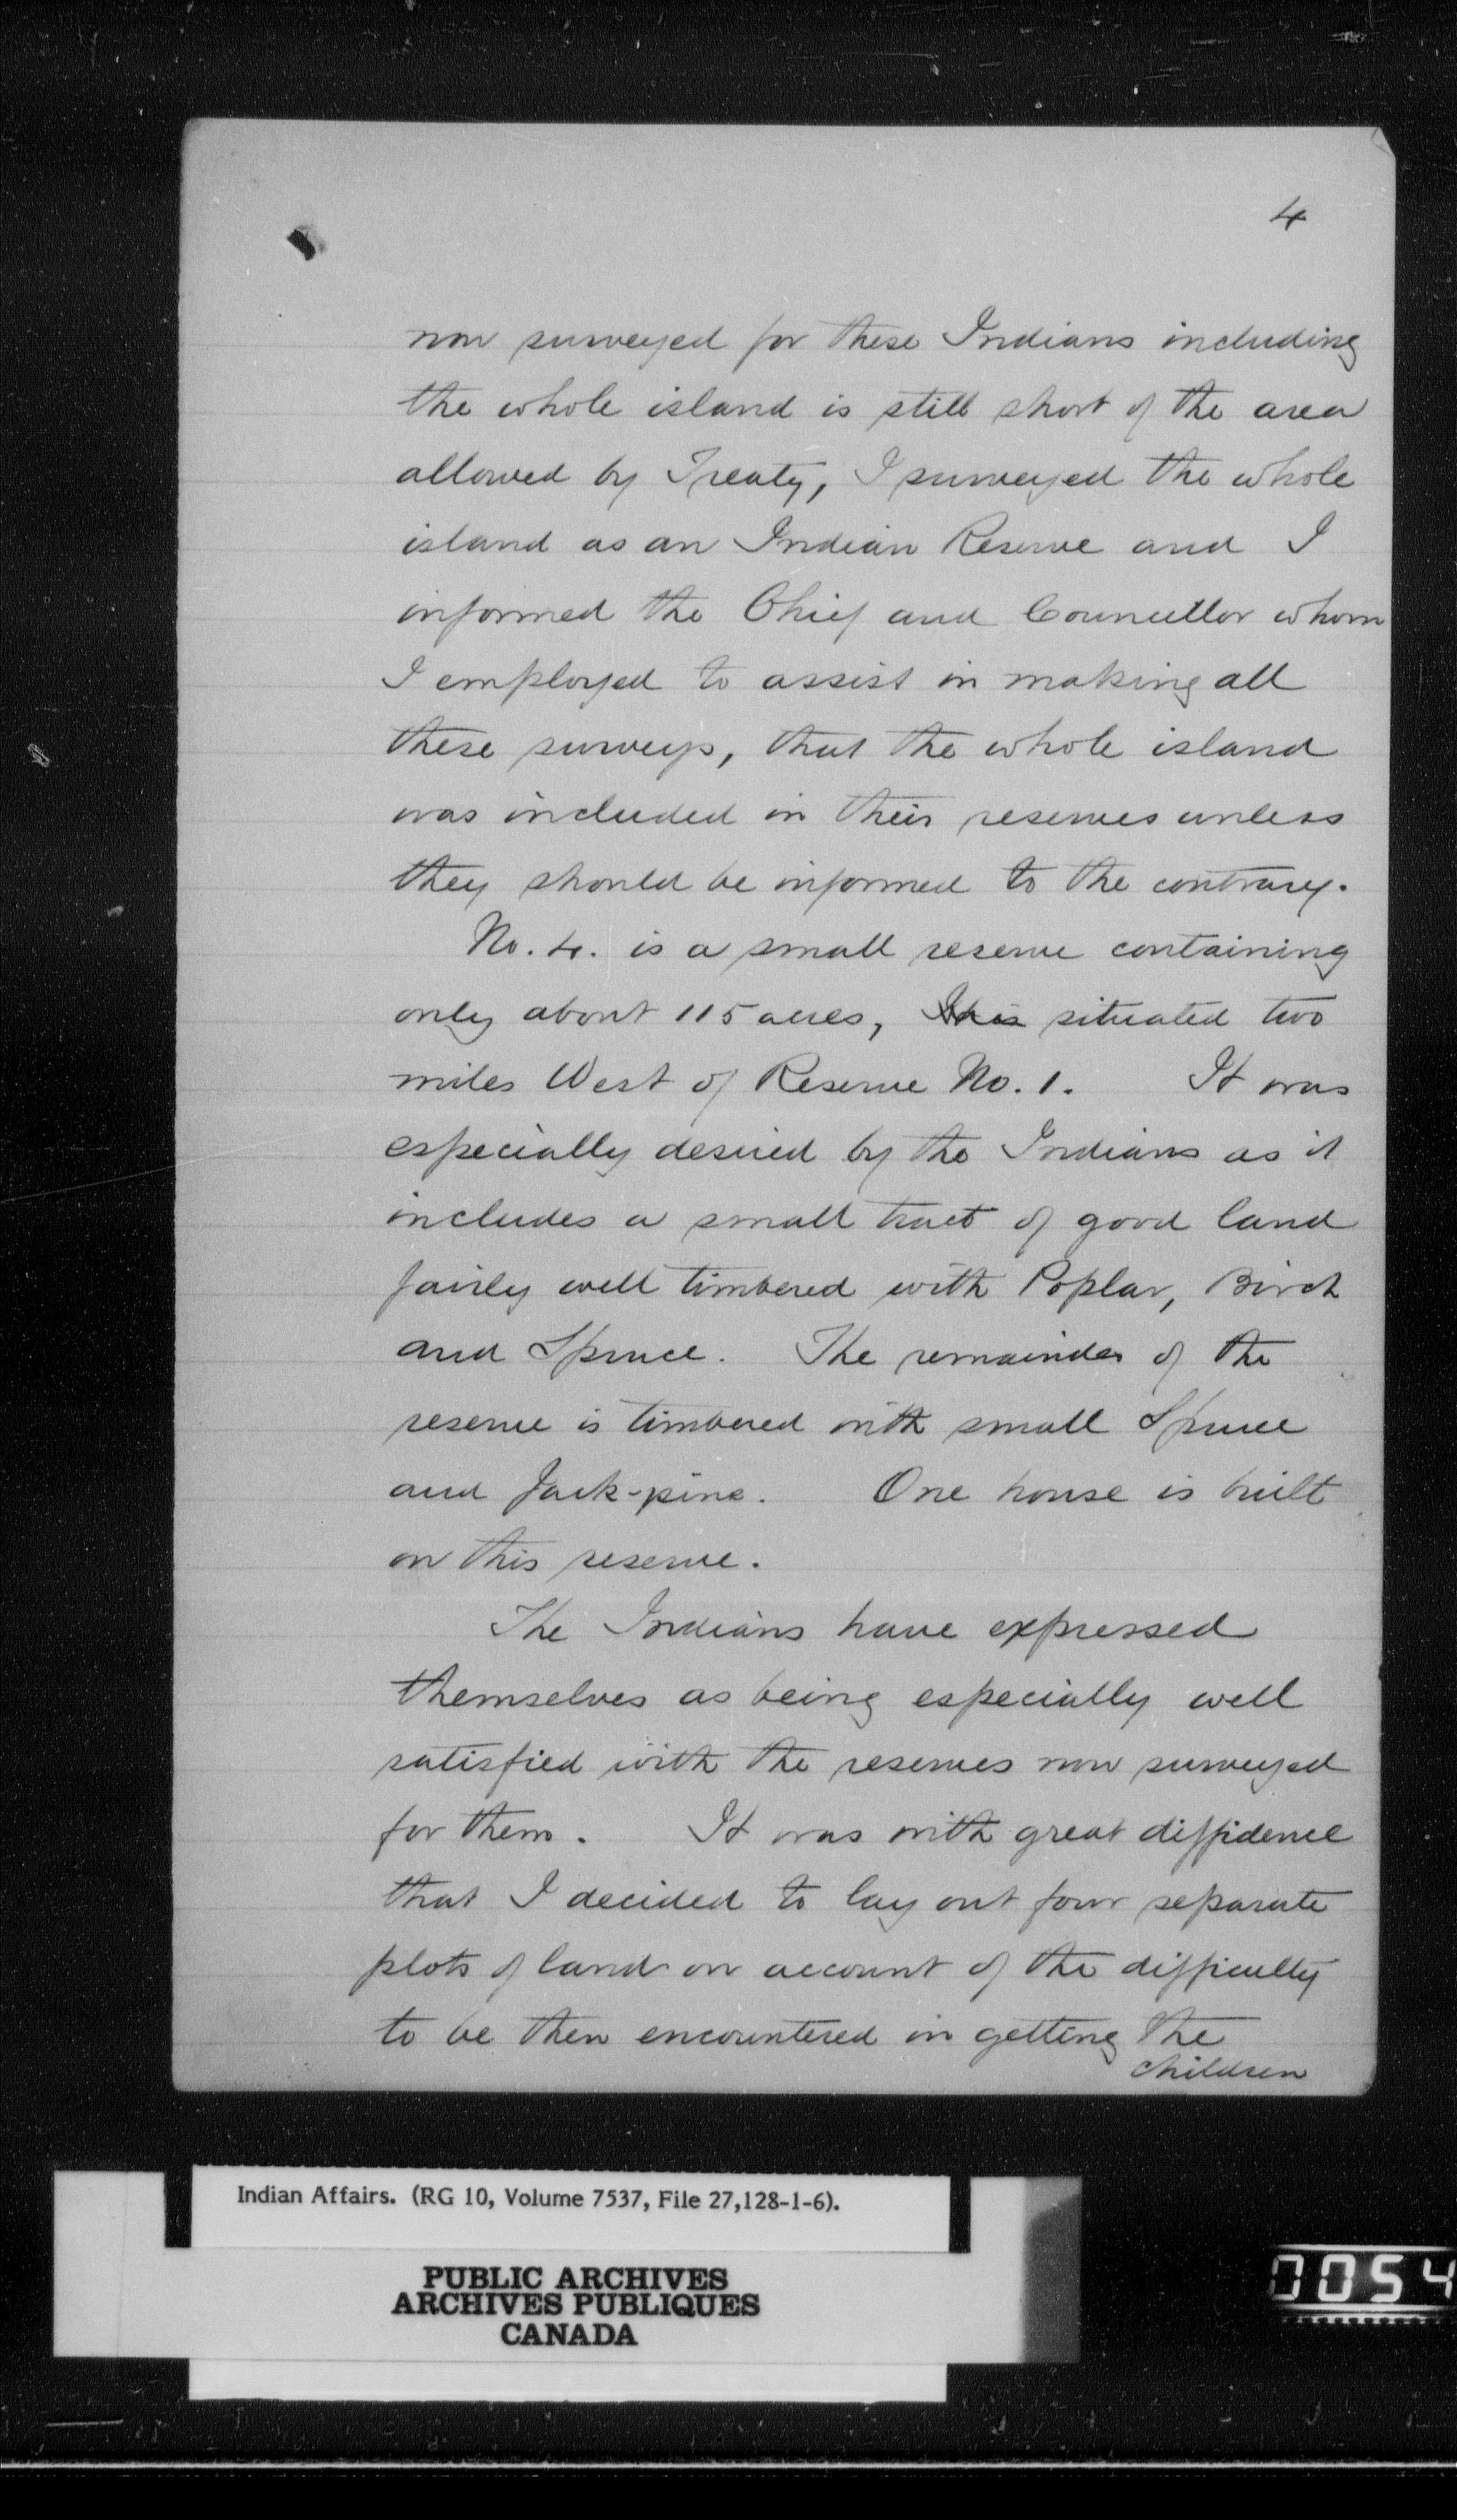 4
now surveyed for these Indians including
the whole island is still short of the area
allowed by Treaty, I surveyed the whole
island as an Indian Reserve and I
informed the Chief and Councillor whom
I employed to assist in making all
these surveys, that the whole island
was included in their reserves unless
they should be informed to the contrary.
No. 4. is a small reserve containing
only about 115 acres, situated two
miles West of Reserve No. 1. It was
especially desired by the Indians as it
includes a small tract of good land
fairly well timbered with Poplar, Birch
and Spruce. The remainder of the
reserve is timbered with small Spruce
and Jack-pine. One house is built
on this reserve.
The Indians have expressed
themselves as being especially well
satisfied with the reserves now surveyed
for them. It was with great diffidence
that I decided to lay out four separate
plots of land on account of the difficulty
to be then encountered in getting the
children
Indian Affairs. (RG 10, Volume 7537, File 27,128-1-6).
PUBLIC ARCHIVES
ARCHIVES PUBLIQUES
CANADA
0054